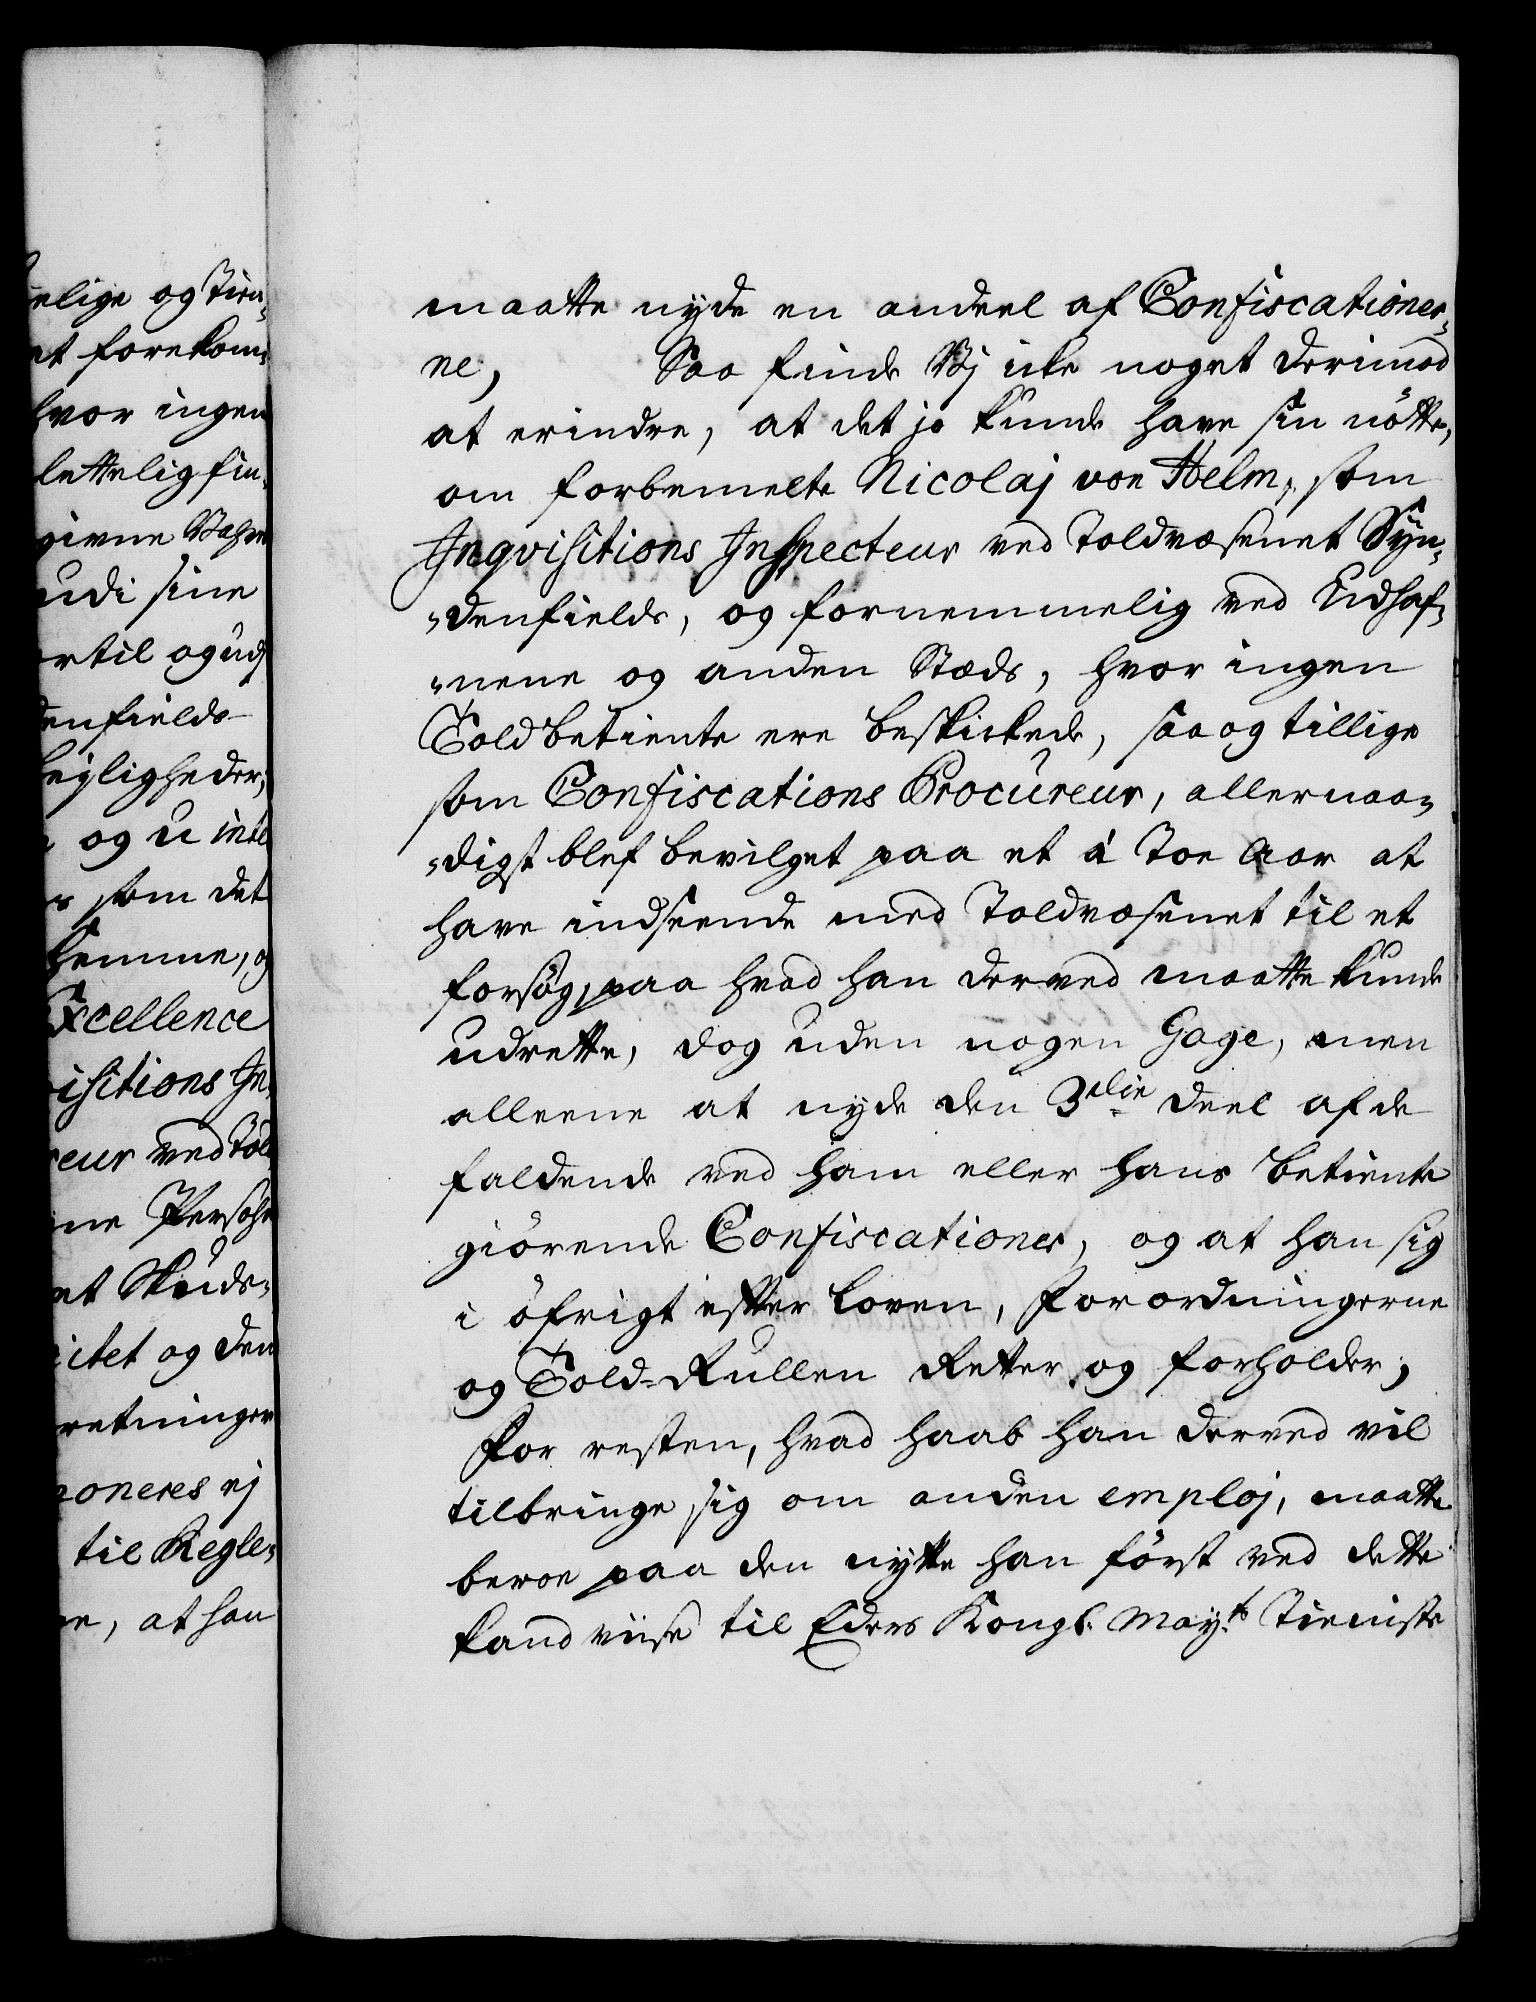 elige og Tien-
et forekom-
hvor ingen
lettelig fin-
givne Vahre
udi sine
ertil og ud
denfields
eyligheder,
og u
som det
hemme, og
Excellence
isitions In-
eur ved Tol
ne Persohn
et Skuds-
itet og den
retninger
oneres ej
til Regle-
e, at han
maatte nyde en andeel af Confiscationer-
ne, Saa finde Vj icke noget derimod
at erindre, at det jo kunde have sin nötte,
om forbemelte Nicolaj von Helm, som
Inqvisitions Inspecteur ved Toldvæsenet Syn-
-denfields, og fornemmelig ved Udhaf-
-nene og anden Stæds, hvor ingen
Toldbetiente ere beskickede, saa og tillige
som Confiscations Procureur, allernaa-
-digst blef bevilget paa et á Toe Aar at
have indseende med Toldvæsenet til et
forsøg, paa hvad han derved maatte kunde
udrette, dog uden nogen Gage, men
alleene at nyde den 3die deel af de
faldende ved ham eller hans betiente
giörende Confiscationer, og at han sig
i öfrigt efter Loven, Forordningerne
og Told-Rullen Retter og forholder;
For resten, hvad haab han derved vil
tilbringe sig om anden emploj, maatte
beroe paa den nytte han först ved dette
kand viise til Eders Kongl. Mayts Tieniste